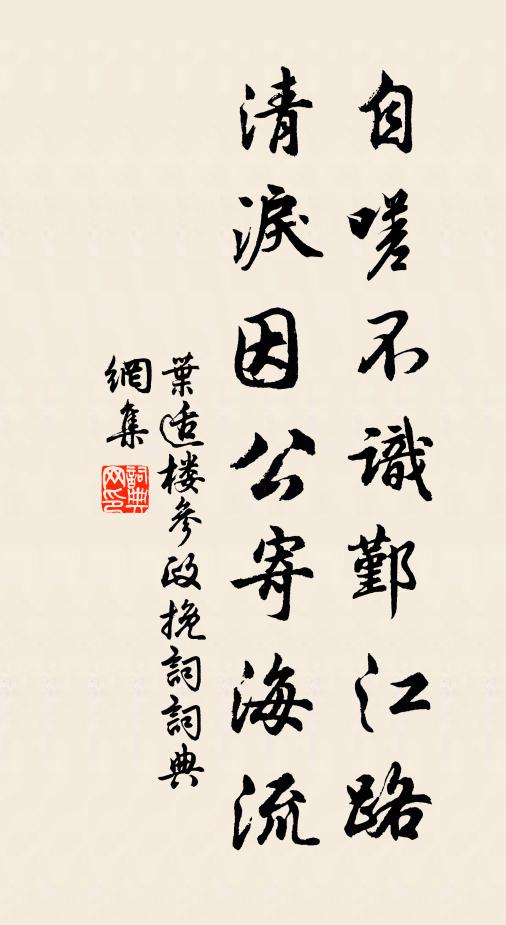 自嗟不識鄞江路
清淚因公寄海流
葉适楼參政挽詞詞典
網集
詞典
网印